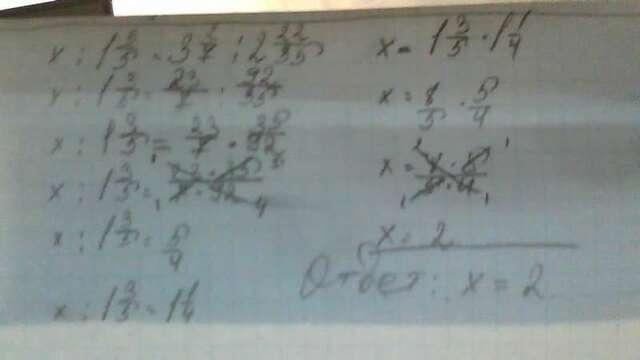 x : 1 3/5 = 3 2/7 : 2 22/35
x : 1 3/5 = 23/7 : 92/35
x : 1 3/5 = 23/7 · 35/92
x : 1 3/5 = 23 · 35/7 · 92
x : 1 3/5 = 5/4
x : 1 3/5 = 1 1/4
x = 1 3/5 · 1 1/4
x = 8/5 · 5/4
x = 8 · 5/5 · 4
x = 2
Ответ: x = 2